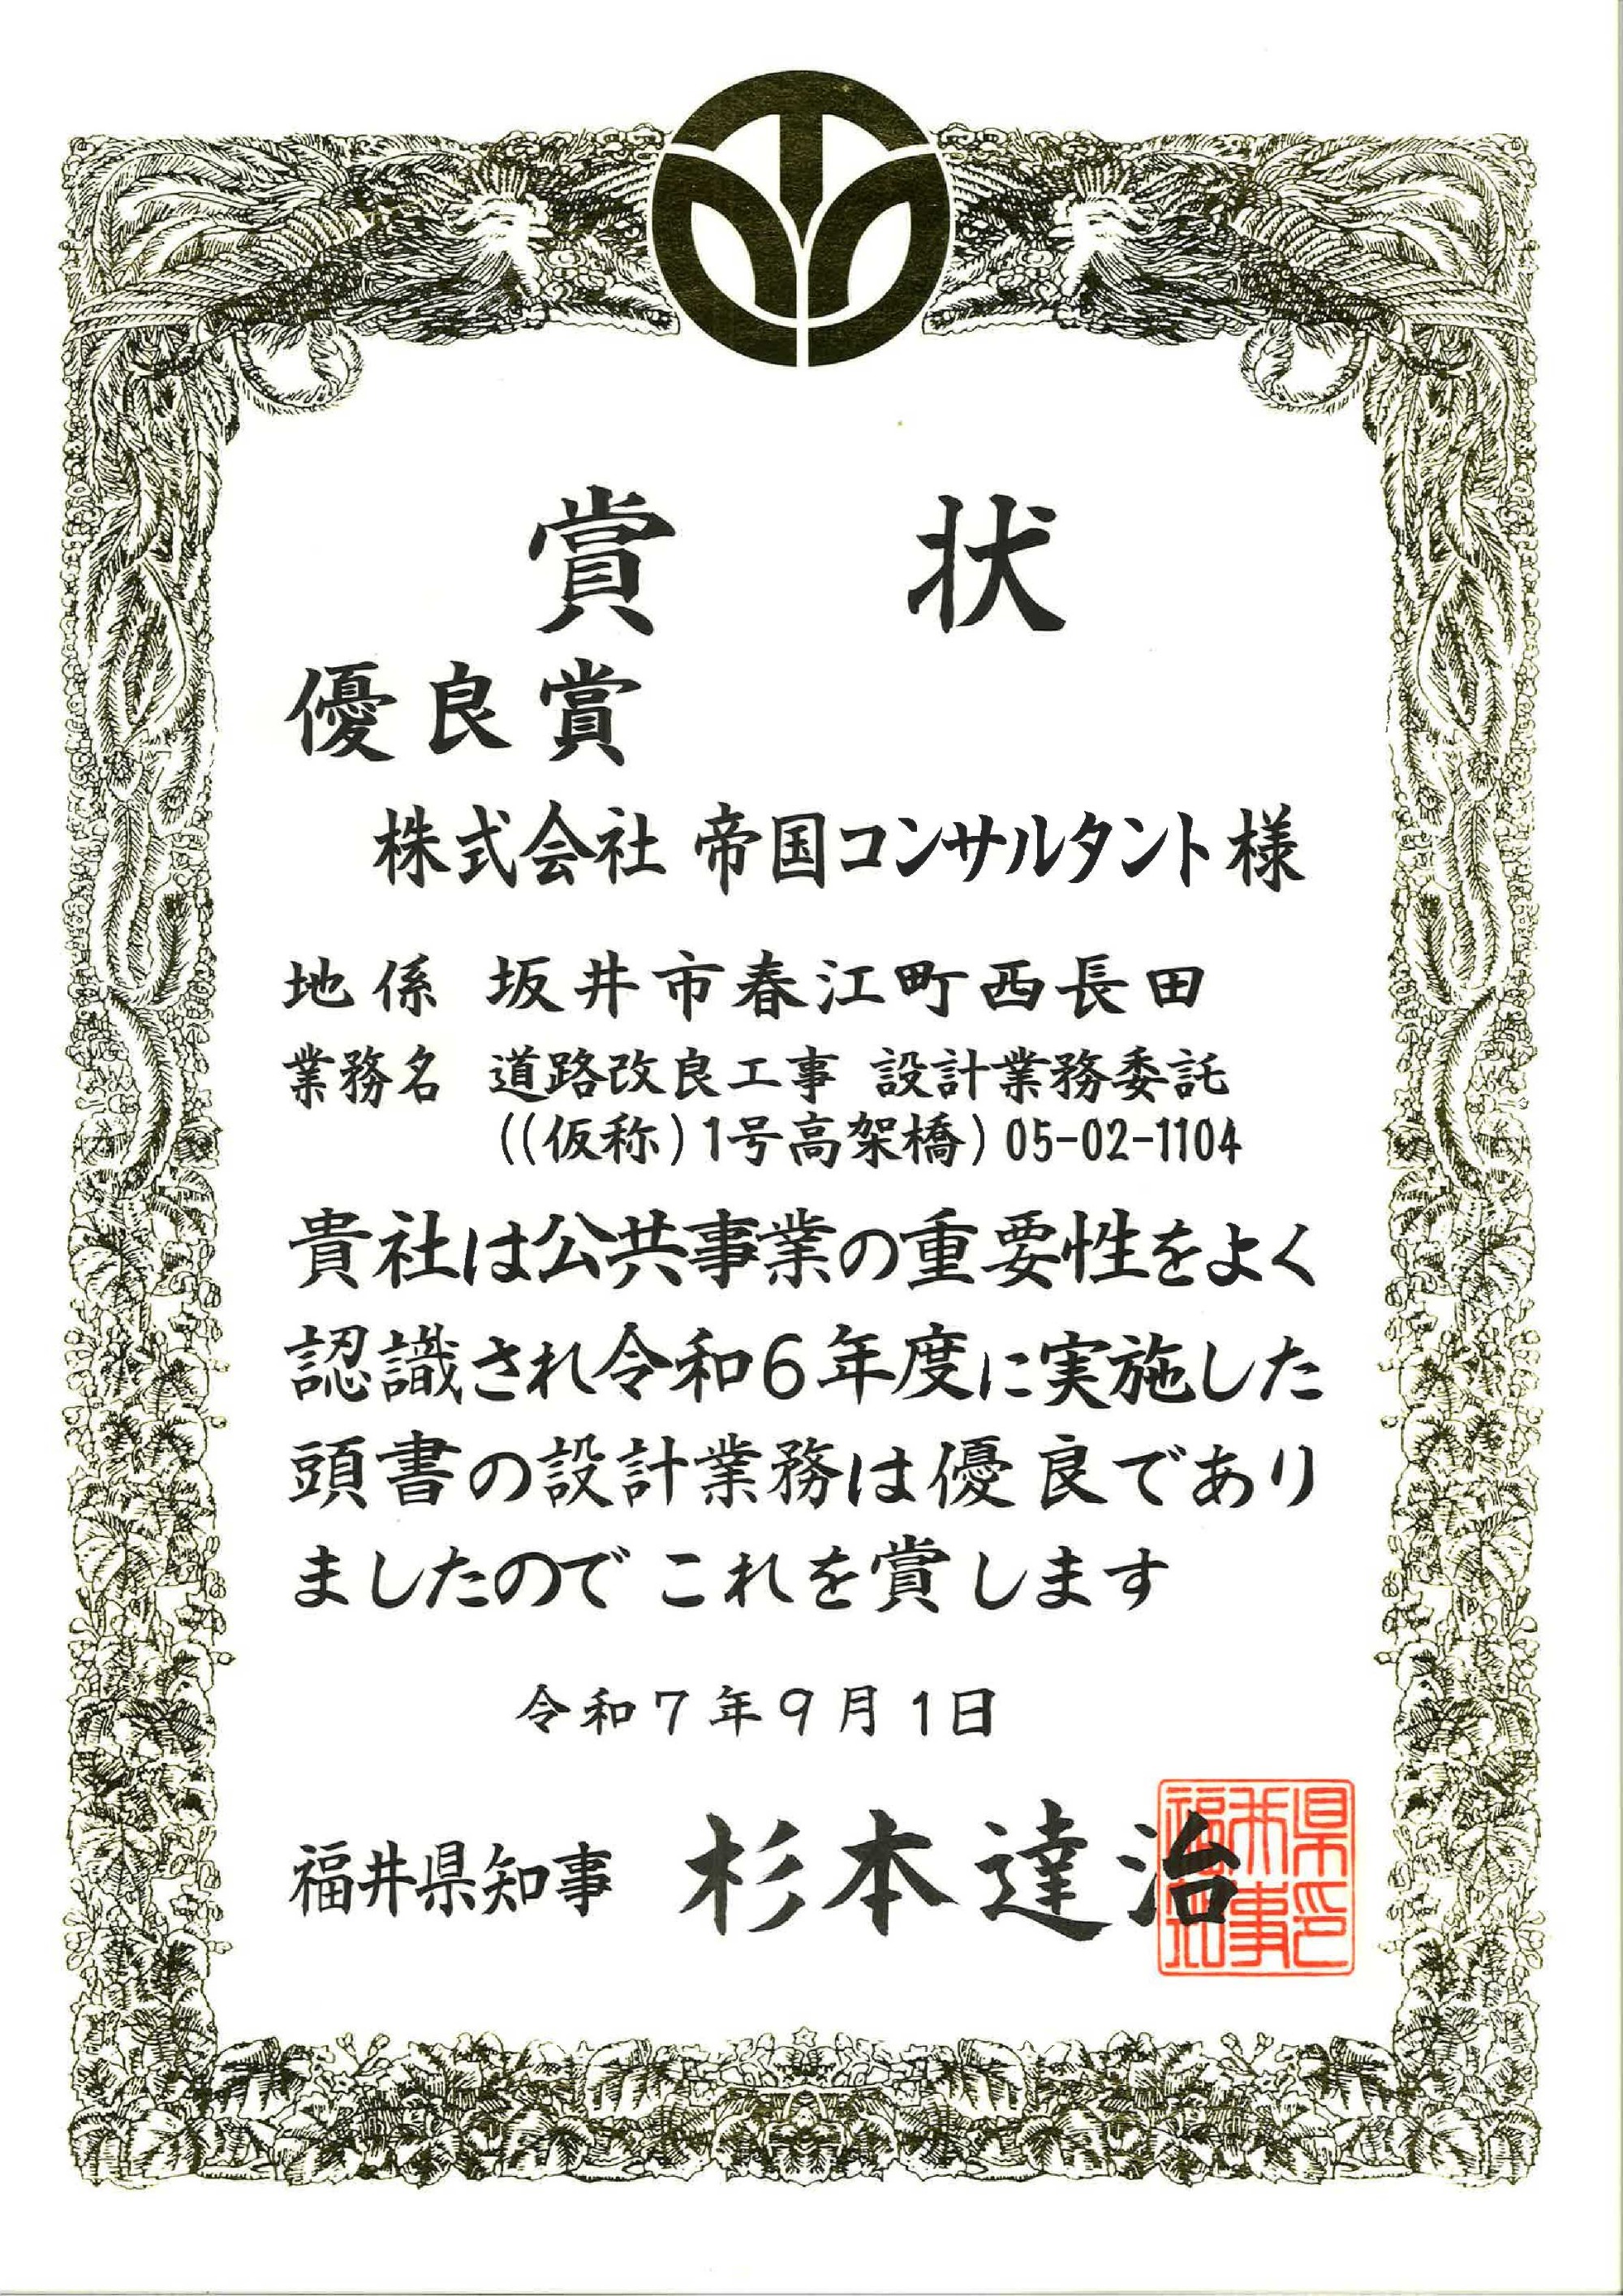 賞状
優良賞
株式会社 帝国コンサルタント 様
地係 坂井市春江町西長田
業務名 道路改良工事 設計業務委託
((仮称)1号高架橋)05-02-1104
貴社は公共事業の重要性をよく
認識され令和6年度に実施した
頭書の設計業務は優良であり
ましたので これを賞します
令和7年9月1日
福井県知事 杉本達治
福井県知事印